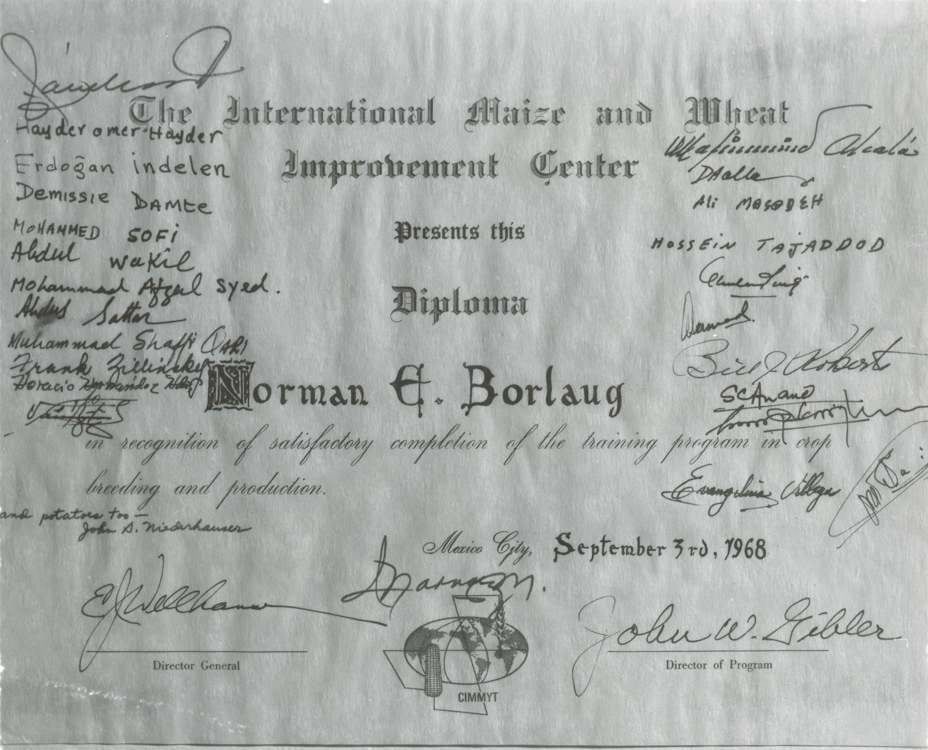 The International Maize and Wheat
Improvement Center
Presents this
Diploma
Norman E. Borlaug
in recognition of satisfactory completion of the training program in crop
breeding and production.
Mexico City, September 3rd, 1968
Hayder omer Hayder
Erdoğan indelen
Demissie DAMTE
MOHAMMED SOFI
Abdul Wakil
Mohammad Afzal Syed.
Abdus Sattar
Muhammad Shaffi QARI
Frank Zillinsky
Horacio Hernandez
and potatoes too —
John S. Niederhauser
Ali MASODEH
HOSSEIN TAJADDOD
Bill J Roberts
SC Anand
Evangelina Villegas
EJ Wellhausen
Director General
CIMMYT
John W. Gibler
Director of Program